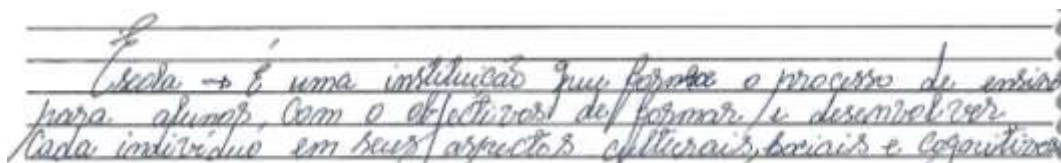 Escola → É uma instituição que forma o processo de ensino
para alunos, com o objectivos de formar e desenvolver
Cada indivíduo em seus aspectos culturais, sociais e cognitivos